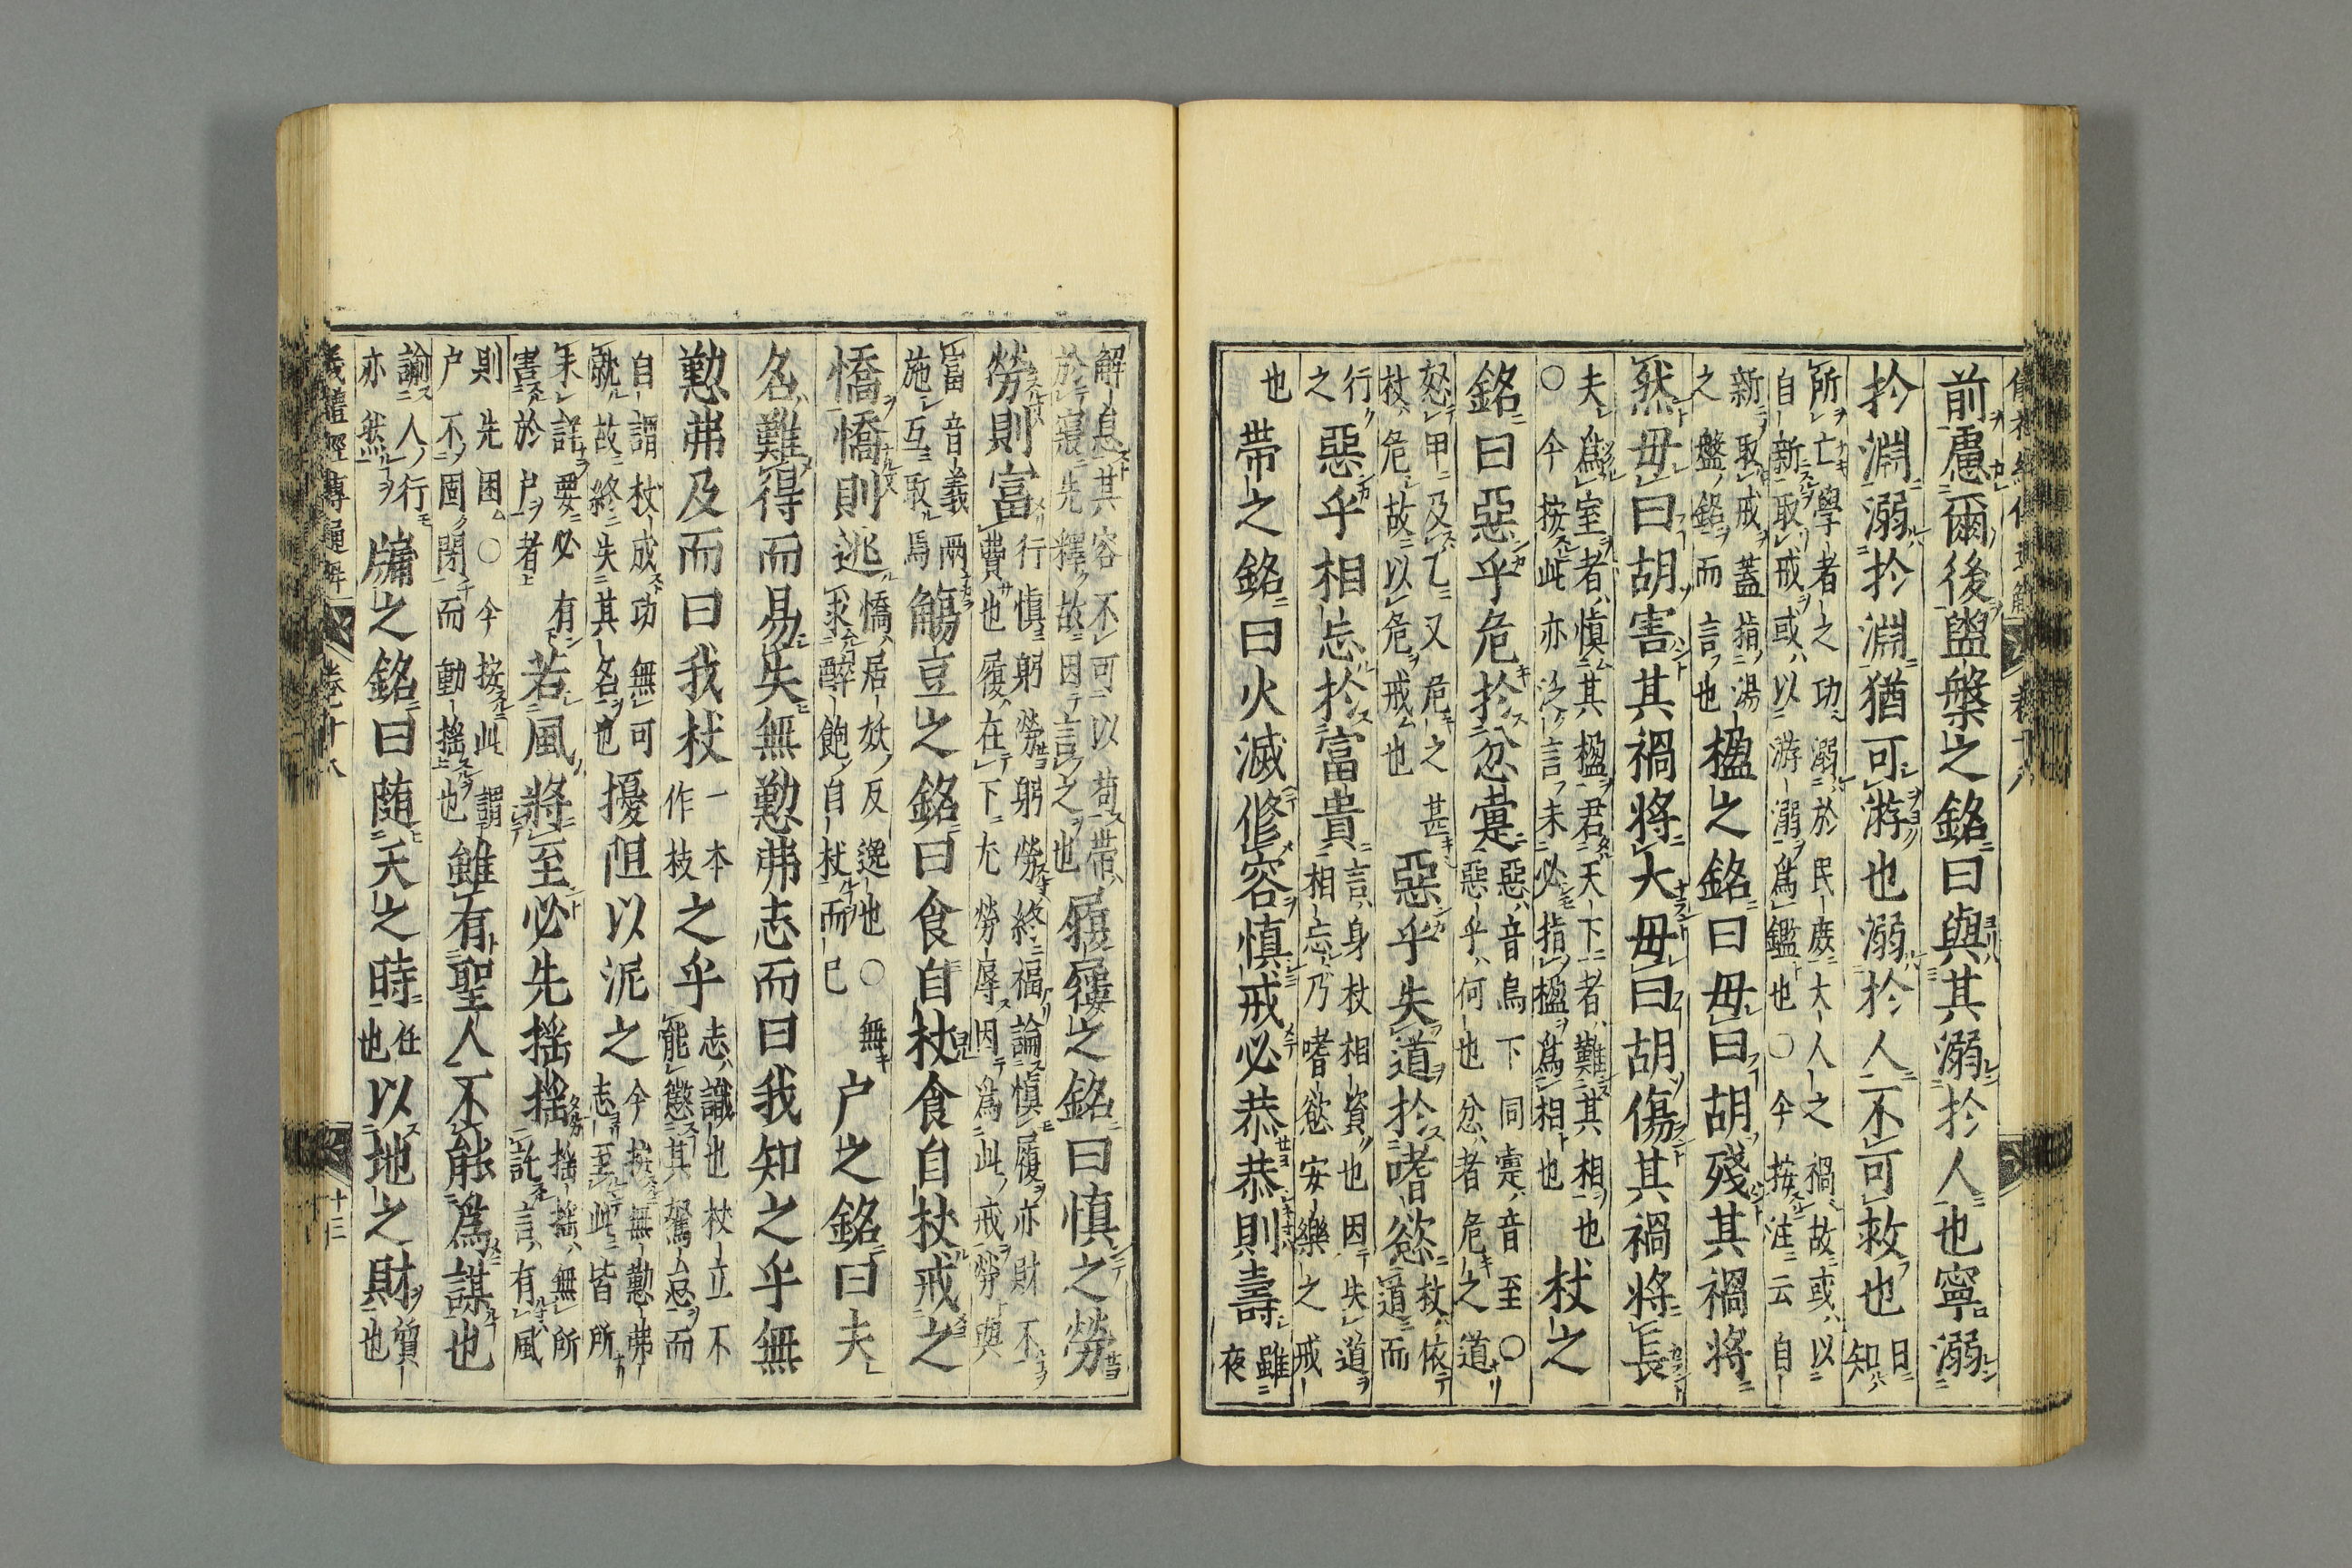 前慮爾後盥槃之銘曰與其溺扵人也寧溺
扵淵溺扵淵猶可游也溺扵人不可救也
日
知
所亡學者之功溺於民庶大人之禍故或以
自新取戒或以游溺爲鑑也○今按注云自
新取戒蓋指湯
之盤銘而言也
楹之銘曰毋曰胡殘其禍将
然毋曰胡害其禍将大毋曰胡傷其禍将長
夫爲室者慎其楹君天下者難其相也
○今按此亦泛言未必指楹爲相也
杖之
銘曰惡乎危扵忿疐
惡音烏下同疐音至○
惡乎何也忿者危之道
怒甲及乙又危之甚
杖危故以危戒也
惡乎失道扵嗜慾
杖依
道而
行
之
惡乎相忘扵富貴
言身杖相資也因失道
相忘乃嗜慾安樂之戒
也
帶之銘曰火滅修容慎戒必恭恭則壽
雖
夜
解息其容不可以苟帶
於寢先釋故因言之也
履屨之銘曰慎之勞
勞則富
行慎躬勞躬勞終福論慎履亦財不
費也履在下尢勞辱因爲此戒勞與
富音義兩
施互取焉
觴豆之銘曰食自杖食自杖戒之
憍憍則逃
憍居妖反逸也○無
求醉飽自杖而已
户之銘曰夫
名難得而易失無懃弗志而曰我知之乎無
懃弗及而曰我杖
一本
作枝
之乎
志識也杖立不
能懲其駑怠而
自謂杖成功無可
就故終失其名也
擾阻以泥之
今按無懃弗
志至此皆所
未詳要必有
害於户者
若風將至必先揺揺
揺揺無所
託言有風
則先困○今按此謂
户不固閉而動揺也
雖有聖人不能爲謀也
諭人行
亦然
牖之銘曰随天之時
任
也
以地之財
質
也
儀禮經傳通解 卷十八 十三